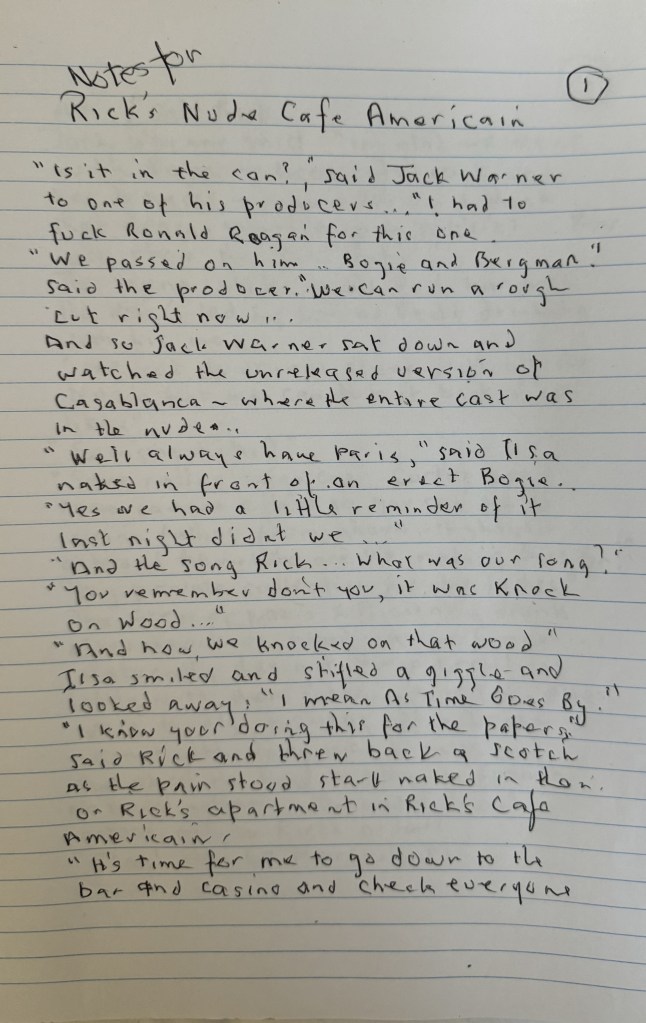 Notes for
①
Rick's Nude Cafe Americain
"Is it in the can?," said Jack Warner
to one of his producers... "I had to
fuck Ronald Reagan for this one.
"We passed on him .. Bogie and Bergman."
said the producer. "We can run a rough
cut right now ...
And so Jack Warner sat down and
watched the unreleased version of
Casablanca ~ where the entire cast was
in the nude...
"We'll always have Paris," said Ilsa
naked in front of an erect Bogie..
"Yes we had a little reminder of it
last night didnt we ..."
"And the song Rick ... What was our song?"
"You remember don't you, it was Knock
on Wood..."
"And how we knocked on that wood"
Ilsa smiled and stifled a giggle and
looked away, "I mean As Time Goes By."
"I know your doing this for the papers,"
said Rick and threw back a scotch
as the pair stood stark naked in
or Rick's apartment in Rick's Cafe
Americain,
"It's time for me to go down to the
bar and casino and check everyone